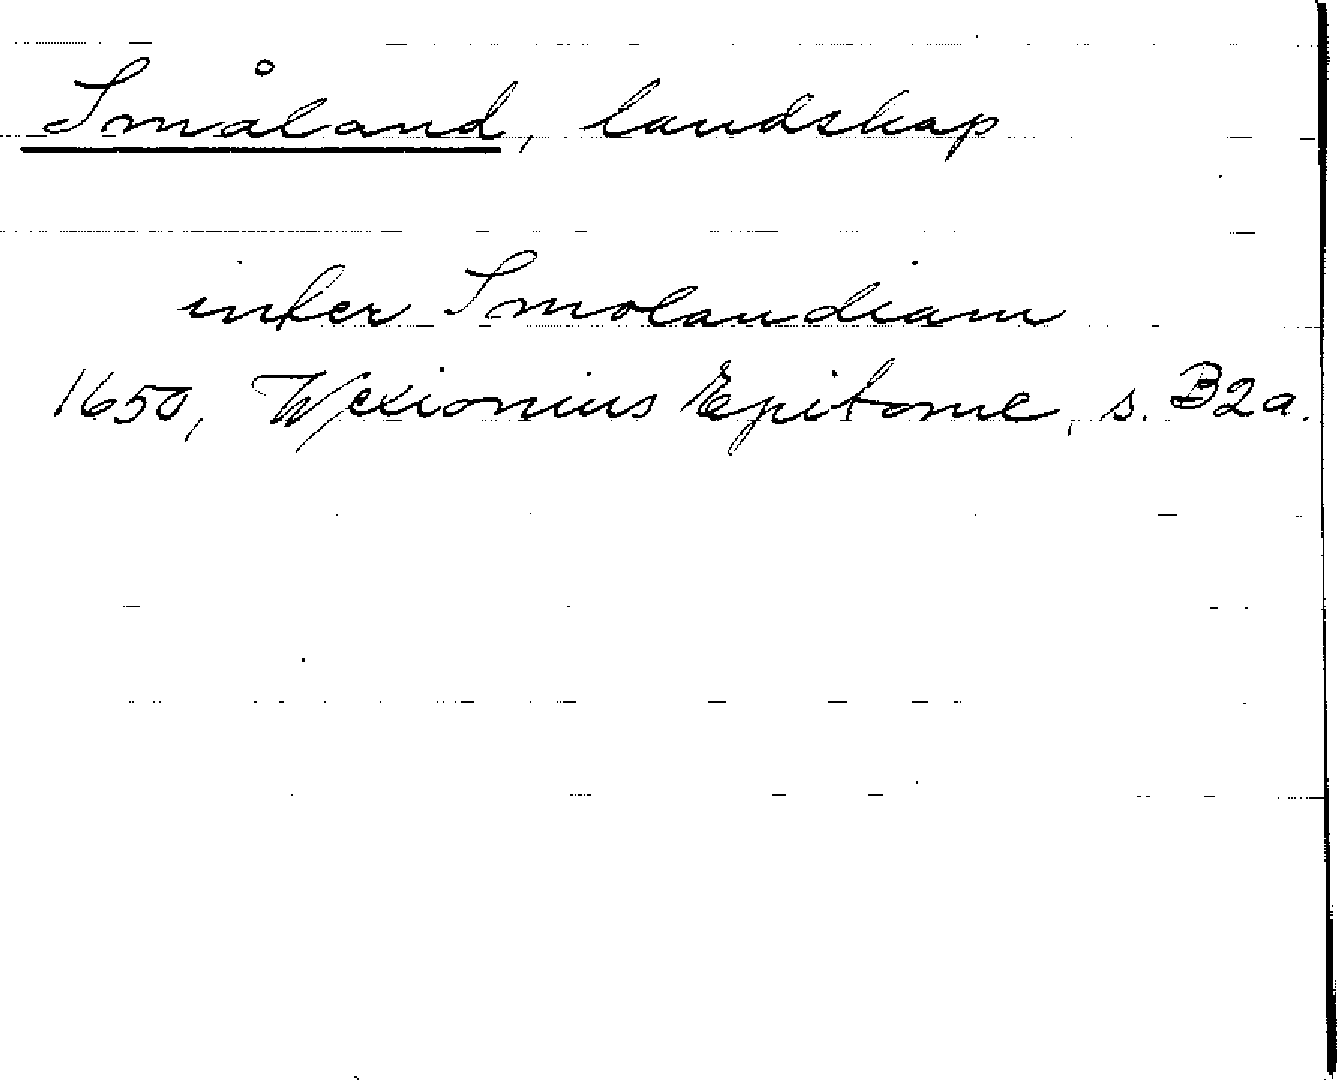 Småland, landskap
inter Smolandiam
1650, Wexionius Epitome, s. B2a.